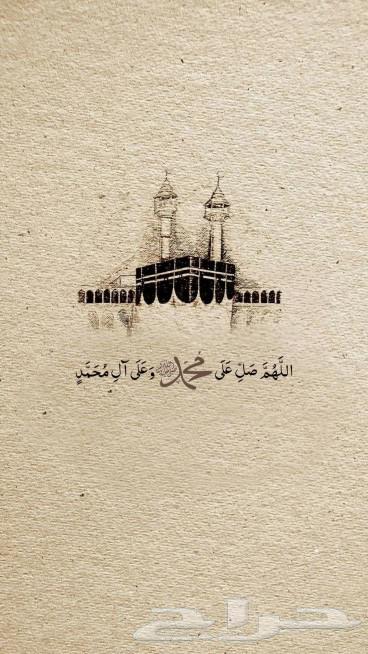 اللَّهُمَّ صَلِّ عَلَى مُحَمَّد ﷺ وَعَلَى آلِ مُحَمَّدٍ
حراج